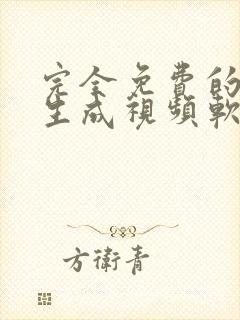 完全免費的
生成視頻軟
方衛青